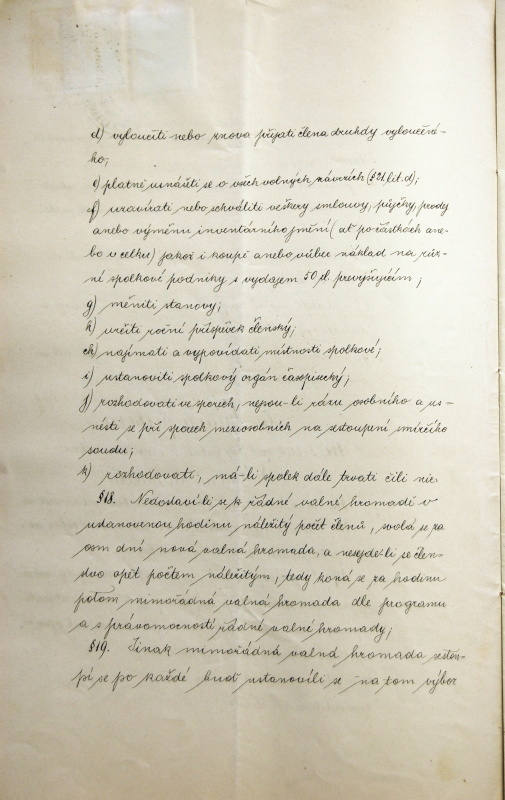 d) vyloučiti nebo znova přijati člena druhdy vyloučené-
ho;
e) platně usnášeti se o všech volných návrzích (§21. lit. d);
f) uzavírati nebo schváliti veškery smlouvy, půjčky, prodej
anebo výměnu inventárního jmění (ať po částkách ane-
bo v celku) jakož i koupi anebo vůbec náklad na růz-
né spolkové podniky s vydajem 50 zl. převyšujícím;
g) měniti stanovy;
h) určiti roční příspěvek členský;
ch) najímati a vypovídati místnosti spolkové;
i) ustanoviti spolkový orgán časopisecký;
j) rozhodovati ve sporech, nejsou-li rázu osobního a us-
nésti se při sporech meziosobních na sestoupení smírčího
soudu;
k) rozhodovati, má-li spolek dále trvati čili nic.
§18. Nedostaví-li se k řádné valné hromadě v
ustanovenou hodinu náležitý počet členů, svolá se za
osm dní nová valná hromada, a nesejde-li se člen-
stvo opět počtem náležitým, tedy koná se za hodinu
potom mimořádná valná hromada dle programu
a s právomocností řádné valné hromady;
§19. Jinak mimořádná valná hromada sestou-
pí se po každé buď ustanovili se na tom výbor